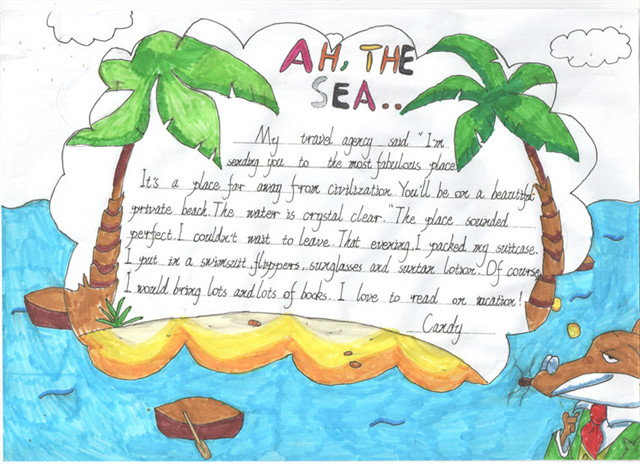 AH, THE
SEA..
My travel agency said "I'm
sending you to the most fabulous place.
It's a place far away from civilization. You'll be on a beautiful
private beach. The water is crystal clear." The place sounded
perfect. I couldn't wait to leave. That evening, I packed my suitcase.
I put in a swimsuit, flippers, sunglasses and suntan lotion. Of course
I would bring lots and lots of books. I love to read on vacation!
Candy